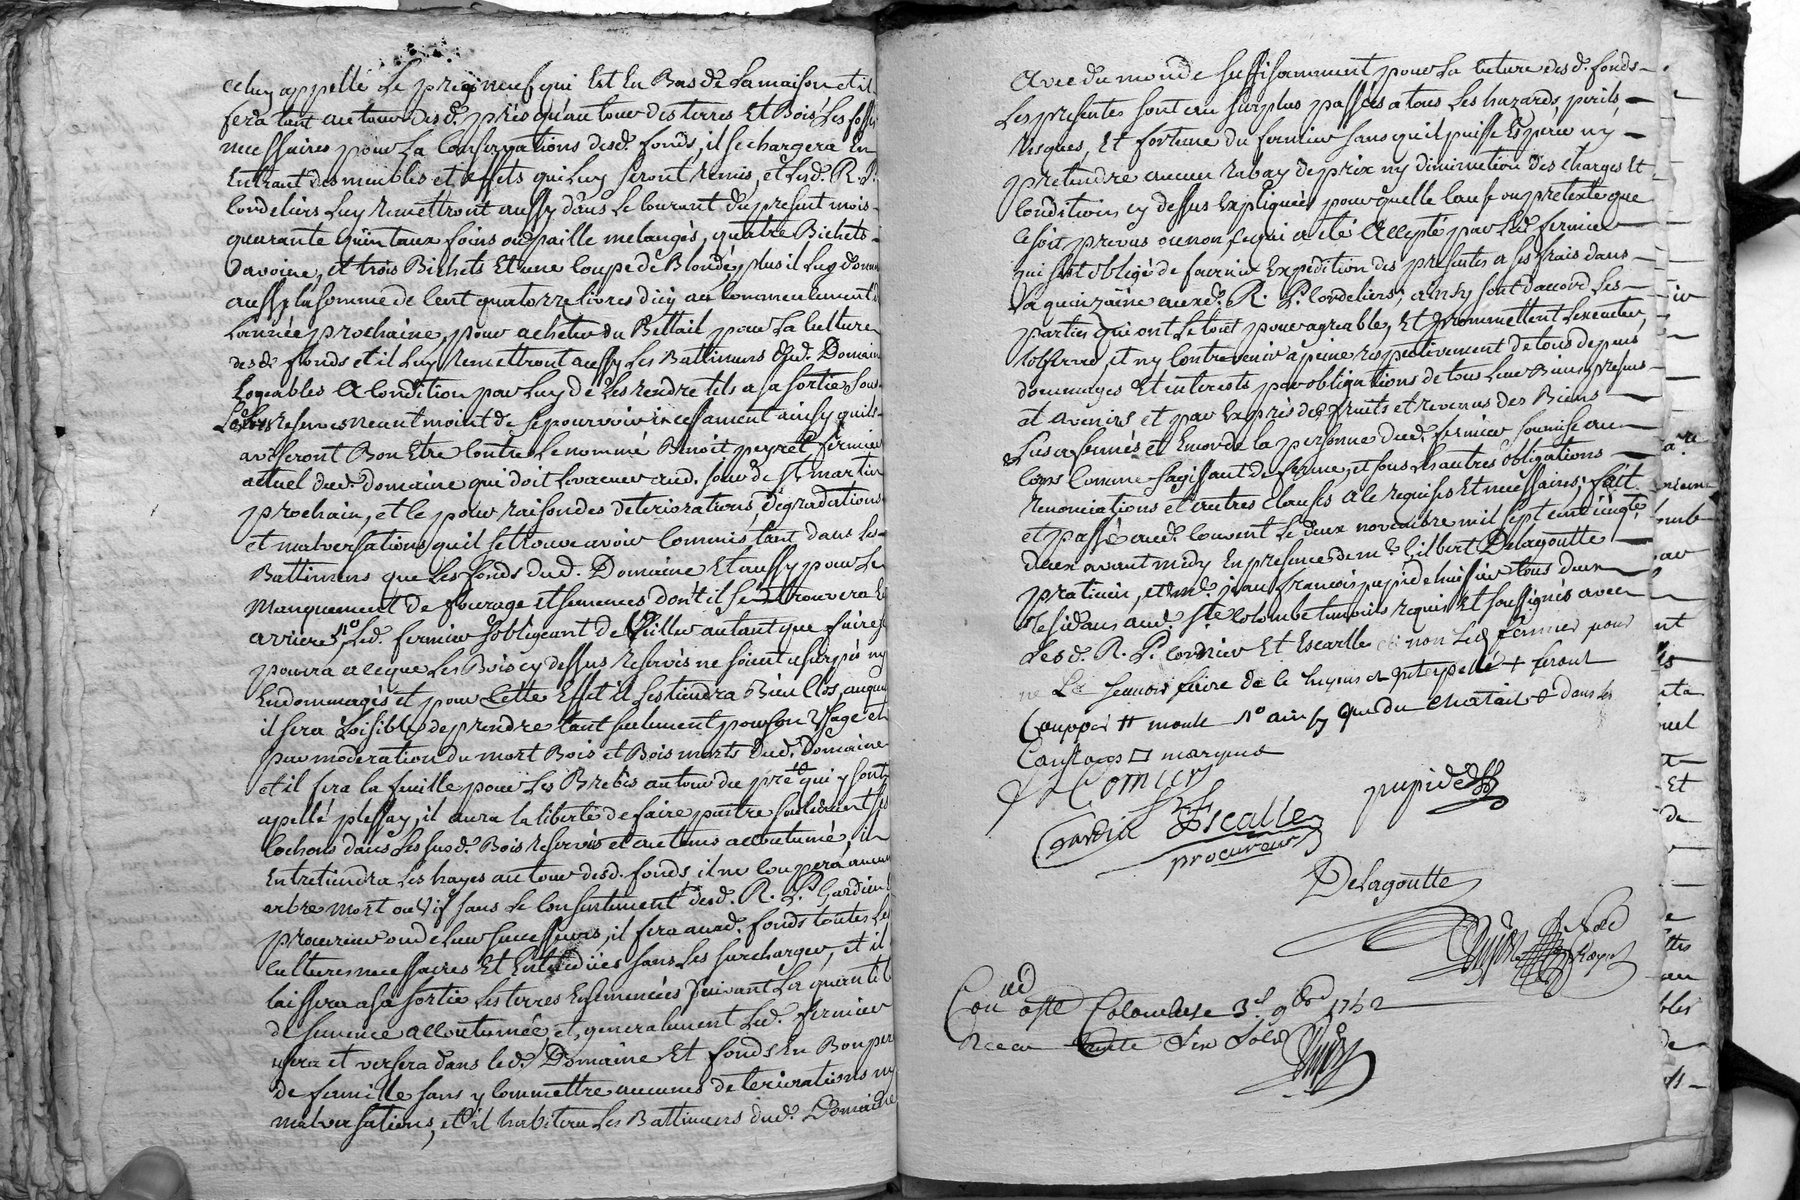 celuy appellé le pré neuf qui Est En Bas de la maison et il
fera tant autour desd. prés qu'autour des terres Et Bois les fossés
necessaires pour La Conservations desd. fonds, il se chargera En
Entrant des meubles et effets qui luy seront remis, et Lesd. R. P.
Cordeliers luy remettront aussy dans le Courant du present mois
quarante quintaux foins ou paille melangés, quatre Bichets
davoine, et trois Bichets Et une Coupe de Blondé, plus il luy
aussy la somme de Cent quatorze livres d'icy au Commencement de
Lannée prochaine, pour acheter du Bettail pour La Culture
desd. fonds et il luy remettront aussy Les Battimens dud. Domaine
Logeables a Condition par luy de Les rendre tels a sa sortie sous
Les reserves neantmoins de se pourvoir incessament ainsy quils
aviseront Bon Etre Contre Le nommé Benoit peyret fermier
actuel dud. domaine qui doit Levacuer aud. jour de St martin
prochain, et ce pour raison des deteriorations, degradations
et malversations quil se trouve avoir Commis tant dans Les
Battimens que Les fonds dud. Domaine Et aussy pour Le
Manquement de fourage et semences dont il se trouvera En
arriere, Led. fermier sobligeant de veiller autant que faire se
pourra a ce que Les Bois cy dessus reservés ne soient usurpés ny
Endommagés et pour Cette Effet il les tiendra Bien Clos, auquel
il sera Loisible de prendre tant seulement pour son Usage et
par moderation du mort Bois et Bois morts dud. Domaine
et il fera la feuille pour Les Brebis autour du pré qui y sont
apellé plessay, il aura la liberté de faire paitre seulement ses
Cochons dans Les susd. Bois reservés et au tems accoutumé, il
Entretiendra Les hayes autour desd. fonds, il ne Coupera aucun
arbre mort ou vif sans Le Consentement desd. R. P. Gardien
procureur ou de Leur successeurs, il fera aud. fonds toutes Les
Cultures necessaires Et Entendües sans Les surcharger, et il
laissera a sa sortie Les terres Ensemencées suivant La quantité
de semence accoutumée et generalement Led. fermier
usera et versera dans led. Domaine Et fonds En Bon pere
de famille sans y Commettre aucunes deteriorations ny
malversations, et il habitera Les Battimens dud. Domaine
avec du monde suffisamment pour la Culture desd. fonds
Les presentes sont au surplus passées a tous Les hazards, perils
risques, Et fortune du fermier sans quil puisse Esperer ny
pretendre aucun rabay de prix ny diminution des charges Et
Conditions cy dessus Expliquées pour quelle Cause ou pretexte que
Ce soit prevus ou non ce qui a eté accepté par Led. fermier
qui sest obligé de fournir Expedition des presentes a ses frais dans
la quinzaine auxd. R. P. Cordeliers; ainsy sont d'accord Les
parties qui ont Le tout pour agreable, Et promettent Lexecuter,
lobserver, et ny Contrevenir a peine respectivement de tous depens
dommages Et interests par obligations de tous Leur Biens presens
et avenirs et par Exprés des fruits et revenus des Biens
susaffermés et Encor de la personne dud. fermier soumise au
Corps Comme sagissant de ferme, et sous Les autres obligations
renonciations et autres Clauses a ce requises Et necessaires; fait
et passé aud. Couvent Le deux novembre mil sept cent cinqte
deux avant midy En presence de me Gilbert Delagoutte
praticien, et de me jean francois pupide huissier tous deux
residans aud. Ste Colombe temoins requis Et soussignés avec
Lesd. R. P. Cordier Et Escalle et non Led. fermier pour
ne Le scavoir faire de ce Enquis et Interpellé + seront
Couppés # monte ainsy que du Chatait dans les
marques
Comier
Gardien f. f. Escalle pupide
procureur
Delagoutte
Con. a Ste Colombe le 3e 9bre 1752
Receu trente six sols